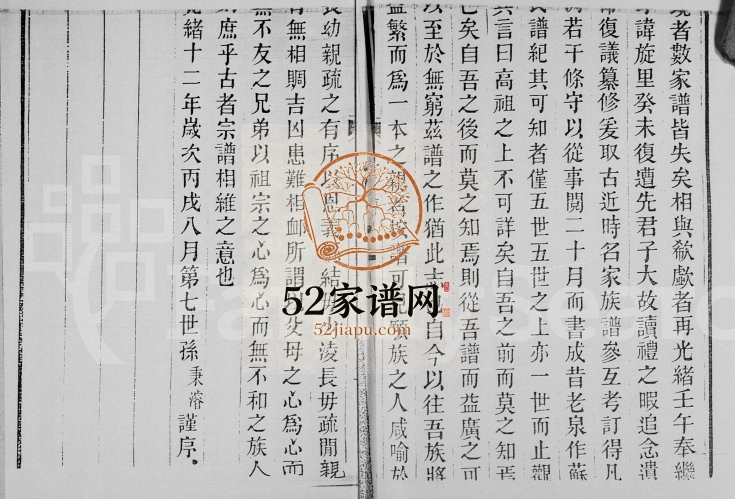 者數家譜皆失矣相與欷歔者再光緒壬午奉繼
諱旋里癸未復遭先君子大故讀禮之暇追念遺
復議纂修爰取古近時名家族譜參互考訂得凡
若干條守以從事閱二十月而書成昔老泉作蘇
譜紀其可知者僅五世五世之上亦一世而止觀
其言曰高祖之上不可詳矣自吾之前而莫之知焉
已矣自吾之後而莫之知焉則從吾譜而益廣之可
以至於無窮茲譜之作猶此志 自今以往吾族將
益繁而為一本之親者按譜可 願族之人咸喻於
長幼親疏之有序以恩義 結毋 凌長毋疏閒親
有無相賙吉凶患難相卹所謂 父母之心為心而
無不友之兄弟以祖宗之心為心而無不和之族人
庶乎古者宗譜相維之意也
光緒十二年歲次丙戌八月第七世孫秉濬謹序
52家谱网
52jiapu.com